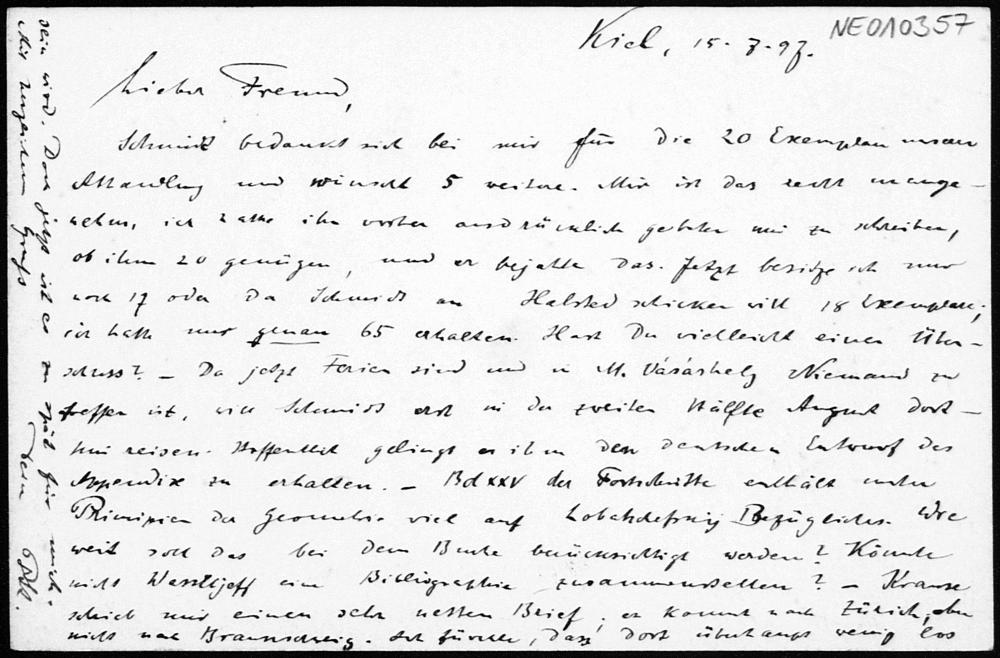 NE010357
Kiel, 15.7.97.
Lieber Freund,
Schmidt bedankt sich bei mir für die 20 Exemplare unserer
Abhandlung und wünscht 5 weitere. Mir ist das recht unange-
nehm, ich hatte ihn vorher ausdrücklich gebeten mir zu schreiben,
ob ihm 20 genügen, und er bejahte das. Jetzt besitze ich nur
noch 17 oder da Schmidt an Halsted schicken will 18 Exemplare;
ich hatte nur genau 65 erhalten. Hast Du vielleicht einen Über-
schuss? – Da jetzt Ferien sind und in M. Vásárhely Niemand zu
treffen ist, will Schmidt erst in der zweiten Hälfte August dort-
hin reisen. Hoffentlich gelingt es ihm den deutschen Entwurf des
Appendix zu erhalten. – Bd XXV der Fortschritte enthält unter
Prinzipien der Geometrie viel auf Lobatschefskij Bezügliches. Wie
weit soll das bei dem Buche berücksichtigt werden? Könnte
nicht Wassiljeff eine Bibliographie zusammenstellen? – Krause
schrieb mir einen sehr netten Brief; er kommt nach Zürich, aber
nicht nach Braunschweig. Ich fürchte, dass dort überhaupt wenig los
sein wird. Doch jetzt ist es zu spät für mich.
Mit herzlichem Gruss
Dein